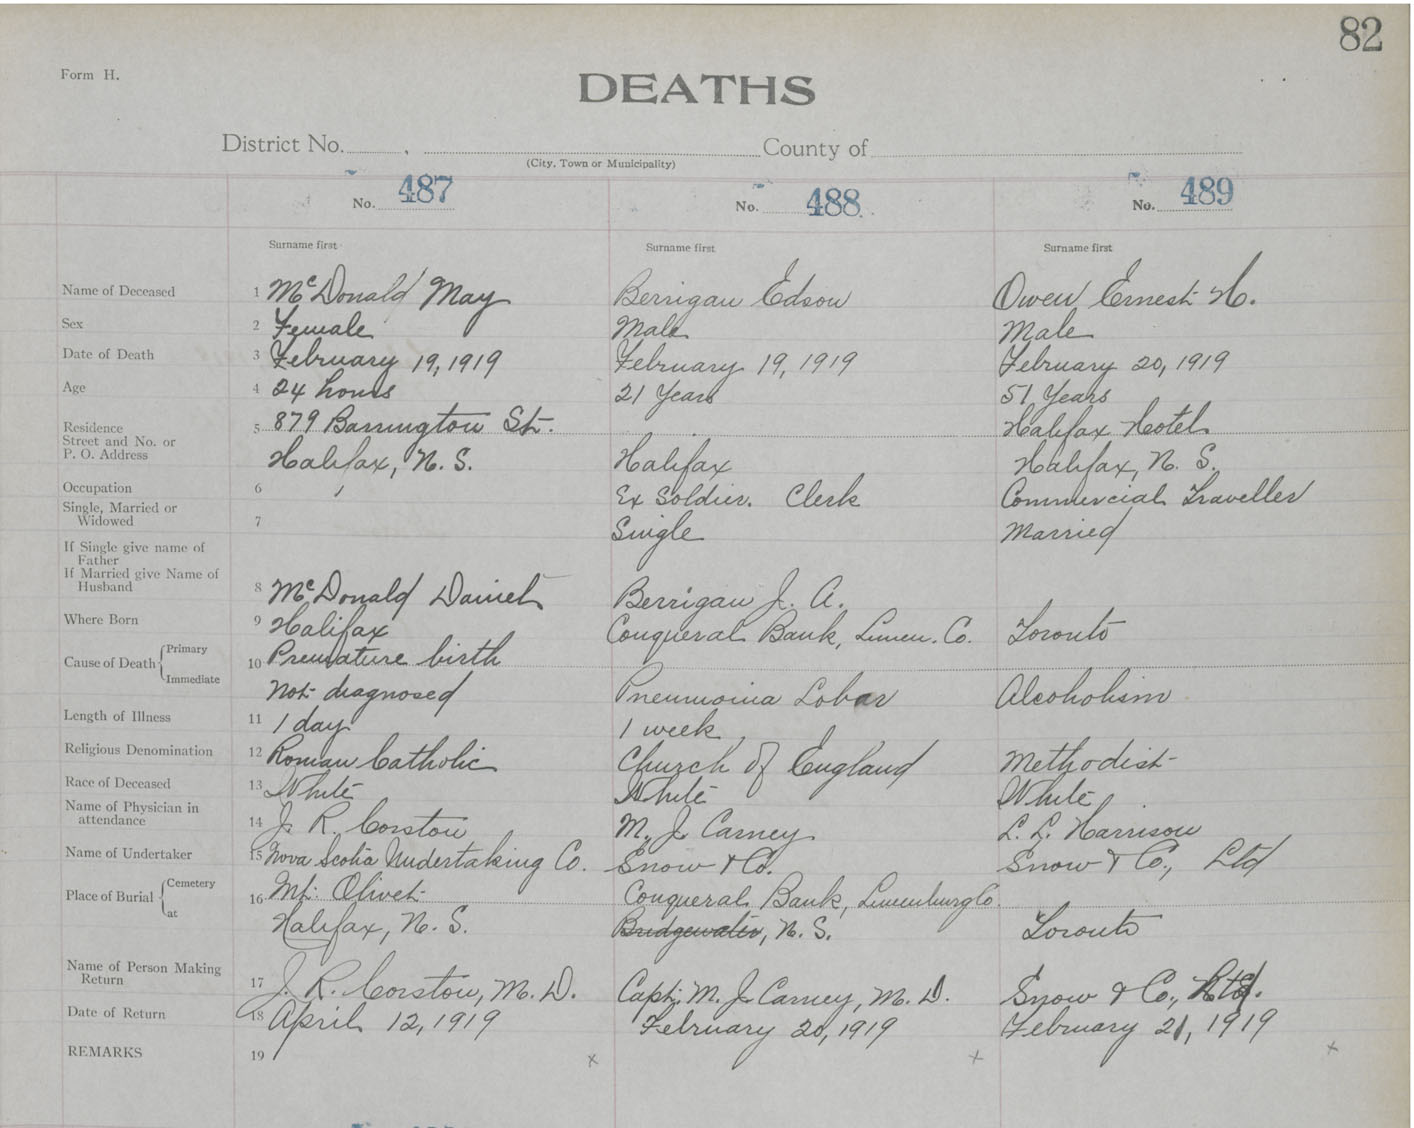 82
Form H.
DEATHS
District No. , County of
(City, Town or Municipality)
No. 487 No. 488 No. 489
Surname first Surname first Surname first
Name of Deceased 1 McDonald May Berrigan Edson Owen Ernest H.
Sex 2 Female Male Male
Date of Death 3 February 19, 1919 February 19, 1919 February 20, 1919
Age 4 24 hours 21 Years 51 Years
Residence 5 879 Barrington St. Halifax Hotel
Street and No. or
P. O. Address Halifax, N. S. Halifax Halifax, N. S.
Occupation 6 Ex Soldier. Clerk Commercial Traveller
Single, Married or
Widowed 7 Single Married
If Single give name of
Father
If Married give Name of
Husband 8 McDonald Daniel Berrigan J. A.
Where Born 9 Halifax Conqueral Bank, Lunen. Co. Toronto
Cause of Death Primary 10 Premature birth
Immediate Not diagnosed Pneumonia Lobar Alcoholism
Length of Illness 11 1 day 1 week
Religious Denomination 12 Roman Catholic Church of England Methodist
Race of Deceased 13 White White White
Name of Physician in
attendance 14 J. R. Corston M. J. Carney L. L. Harrison
Name of Undertaker 15 Nova Scotia Undertaking Co. Snow & Co. Snow & Co., Ltd
Place of Burial Cemetery 16 Mt. Olivet Conqueral Bank, Lunenburg Co.
at Halifax, N. S. Bridgewater, N. S. Toronto
Name of Person Making
Return 17 J. R. Corston, M. D. Capt. M. J. Carney, M. D. Snow & Co., Ltd.
Date of Return 18 April 12, 1919 February 20, 1919 February 21, 1919
REMARKS 19 x x x